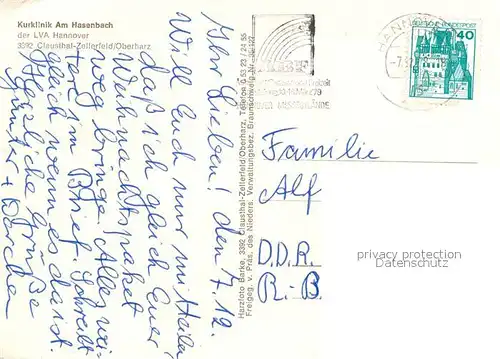 Kurklinik Am Hasenbach
der LVA Hannover
3392 Clausthal-Zellerfeld/Oberharz
Ihr Lieben! den 7.12.
Will Euch nur mitteilen,
daß ich gleich Euer
Weihnachtspaket
weg bringe. Alles wei-
tere im Brief. Schreibt
gleich wenn es da ist.
Herzliche Grüße
Günter +
Harzfoto Barke, 3392 Clausthal-Zellerfeld/Oberharz, Telefon 0 53 23 / 24 55
Freigeg. v. Präs. des Nieders. Verwaltungsbez. Braunschweig Nr.
HANNOVER
DEUTSCHE BUNDESPOST
40
Familie
Alf
D.D.R.
R.-B.
privacy protection
Datenschutz